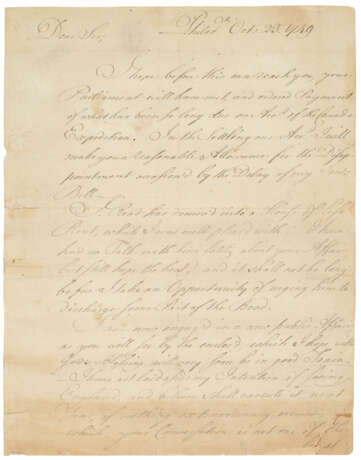 Dear Sir, Philad.a Oct. 23. 1749
I hope before this can reach you, your
Parliament will have met, and ordered Payment
of what has been so long due on Acc.t of
Expedition. In the Settling our Acc.ts I will
make you a reasonable Allowance for the Disap-
pointment occasioned by the Delay of my
Bill.
Mr. Read has removed into a House of less
Rent, which I was well pleas'd with. I have
had no Talk with him lately about your Affair,
but still hope the best; and it shall not be long
before I take an Opportunity of urging him to
discharge some Part of the Bond.
I am now engag'd in a new public Affair
as you will see by the enclos'd which I hope with
God's Blessing will very soon be in good
I have not laid aside my Intention of seeing
England, and believe shall execute it next
Year, if nothing extraordinary occurs
which your Conversation is not one of the
least